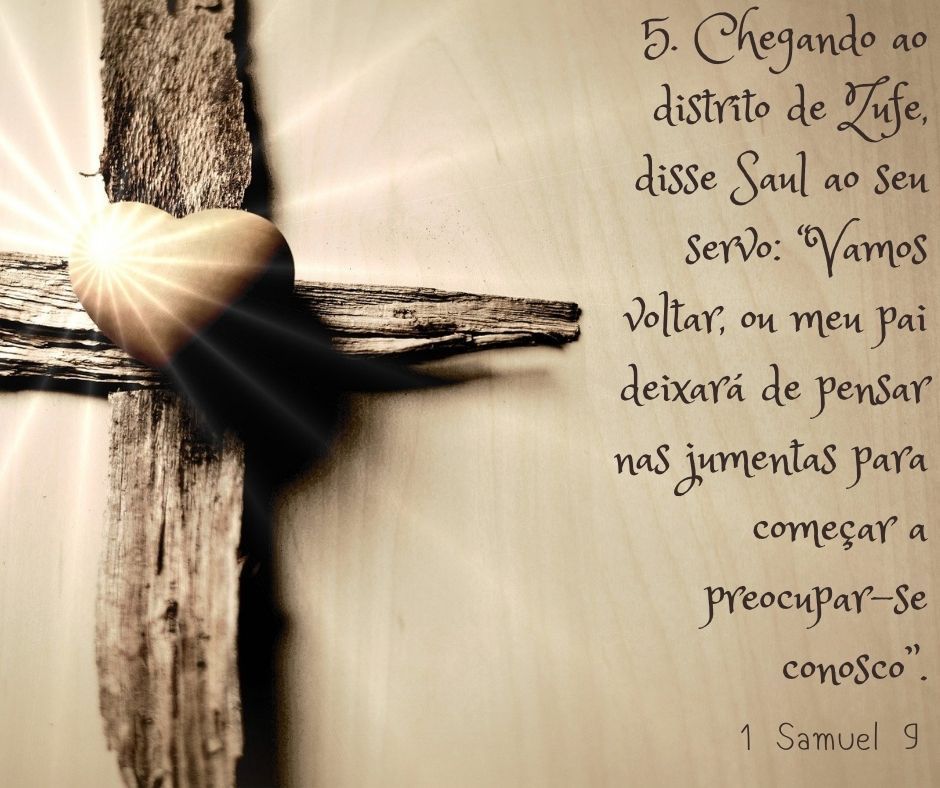 5. Chegando ao
distrito de Zufe,
disse Saul ao seu
servo: “Vamos
voltar, ou meu pai
deixará de pensar
nas jumentas para
começar a
preocupar-se
conosco”.
1 Samuel 9